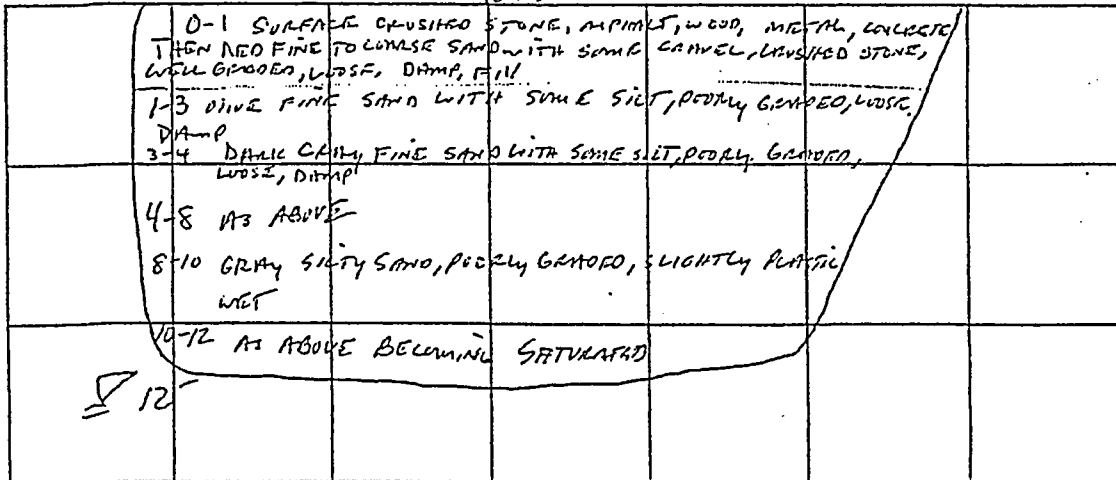 0-1 SURFACE CRUSHED STONE, ASPHALT, WOOD, METAL, CONCRETE
THEN RED FINE TO COARSE SAND WITH SOME GRAVEL, CRUSHED STONE,
WELL GRADED, LOOSE, DAMP, FILL
1-3 OLIVE FINE SAND WITH SOME SILT, POORLY GRADED, LOOSE,
DAMP
3-4 DARK GRAY FINE SAND WITH SOME SILT, POORLY GRADED,
LOOSE, DAMP
4-8 AS ABOVE
8-10 GRAY SILTY SAND, POORLY GRADED, SLIGHTLY PLASTIC
WET
10-12 AS ABOVE BECOMING SATURATED
12